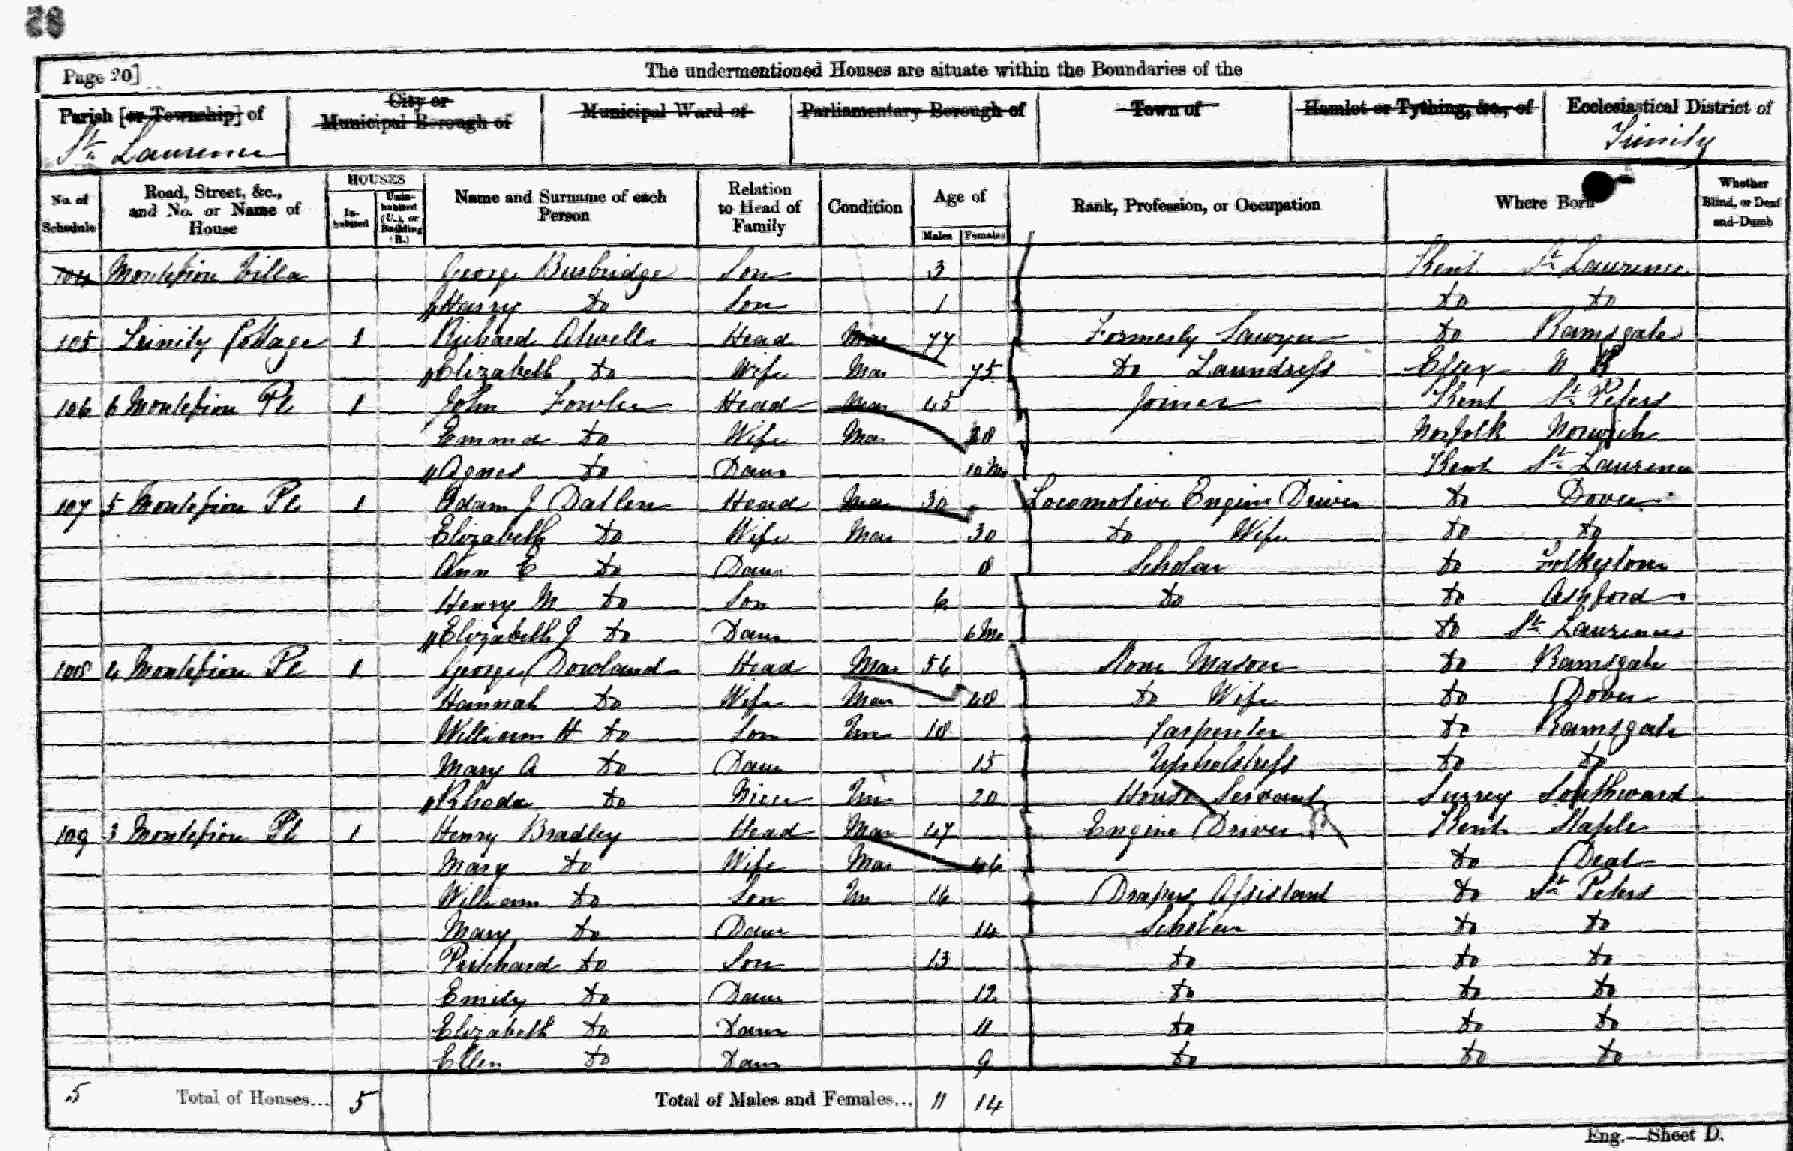 58
Page 20] The undermentioned Houses are situate within the Boundaries of the
Parish [or Township] of City or Municipal Borough of Municipal Ward of Parliamentary Borough of Town of Hamlet or Tything, &c., of Ecclesiastical District of
St Laurence Trinity
No. of Schedule Road, Street, &c., and No. or Name of House HOUSES Inhabited Uninhabited (U.), or Building (B.) Name and Surname of each Person Relation to Head of Family Condition Age of Males Females Rank, Profession, or Occupation Where Born Whether Blind, or Deaf-and-Dumb
104 Montefiore Villa George Busbridge Son 3 Kent St Laurence
Harry do Son 1 do do
105 Trinity Cottage 1 Richard Atwell Head Mar 77 Formerly Sawyer do Ramsgate
Elizabeth do Wife Mar 75 do Laundress Essex N K
106 6 Montefiore Pl 1 John Fowler Head Mar 45 Joiner Kent St Peters
Emma do Wife Mar Norfolk Norwich
Agnes do Daur 10 Mo Kent St Laurence
107 5 Montefiore Pl 1 Adam J Datlen Head Mar 30 Locomotive Engine Driver do Dover
Elizabeth do Wife Mar 30 do Wife do do
Ann E do Daur 8 Scholar do Folkestone
Henry M do Son 6 do do Ashford
Elizabeth J do Daur 6 Mo do St Laurence
108 4 Montefiore Pl 1 George Dowland Head Mar 56 Stone Mason do Ramsgate
Hannah do Wife Mar 48 do Wife do Dover
William H do Son Un 18 Carpenter do Ramsgate
Mary A do Daur 15 Upholstress do do
Rhoda do Niece Un 20 House Servant Surrey Southward
109 3 Montefiore Pl 1 Henry Bradley Head Mar 47 Engine Driver Kent Staple
Mary do Wife Mar 46 do Deal
William do Son Un 16 Drapers Assistant do St Peters
Mary do Daur 14 Scholar do do
Prichard do Son 13 do do do
Emily do Daur 12 do do do
Elizabeth do Daur 11 do do do
Ellen do Daur 9 do do do
5 Total of Houses... 5 Total of Males and Females... 11 14
Eng.—Sheet D.